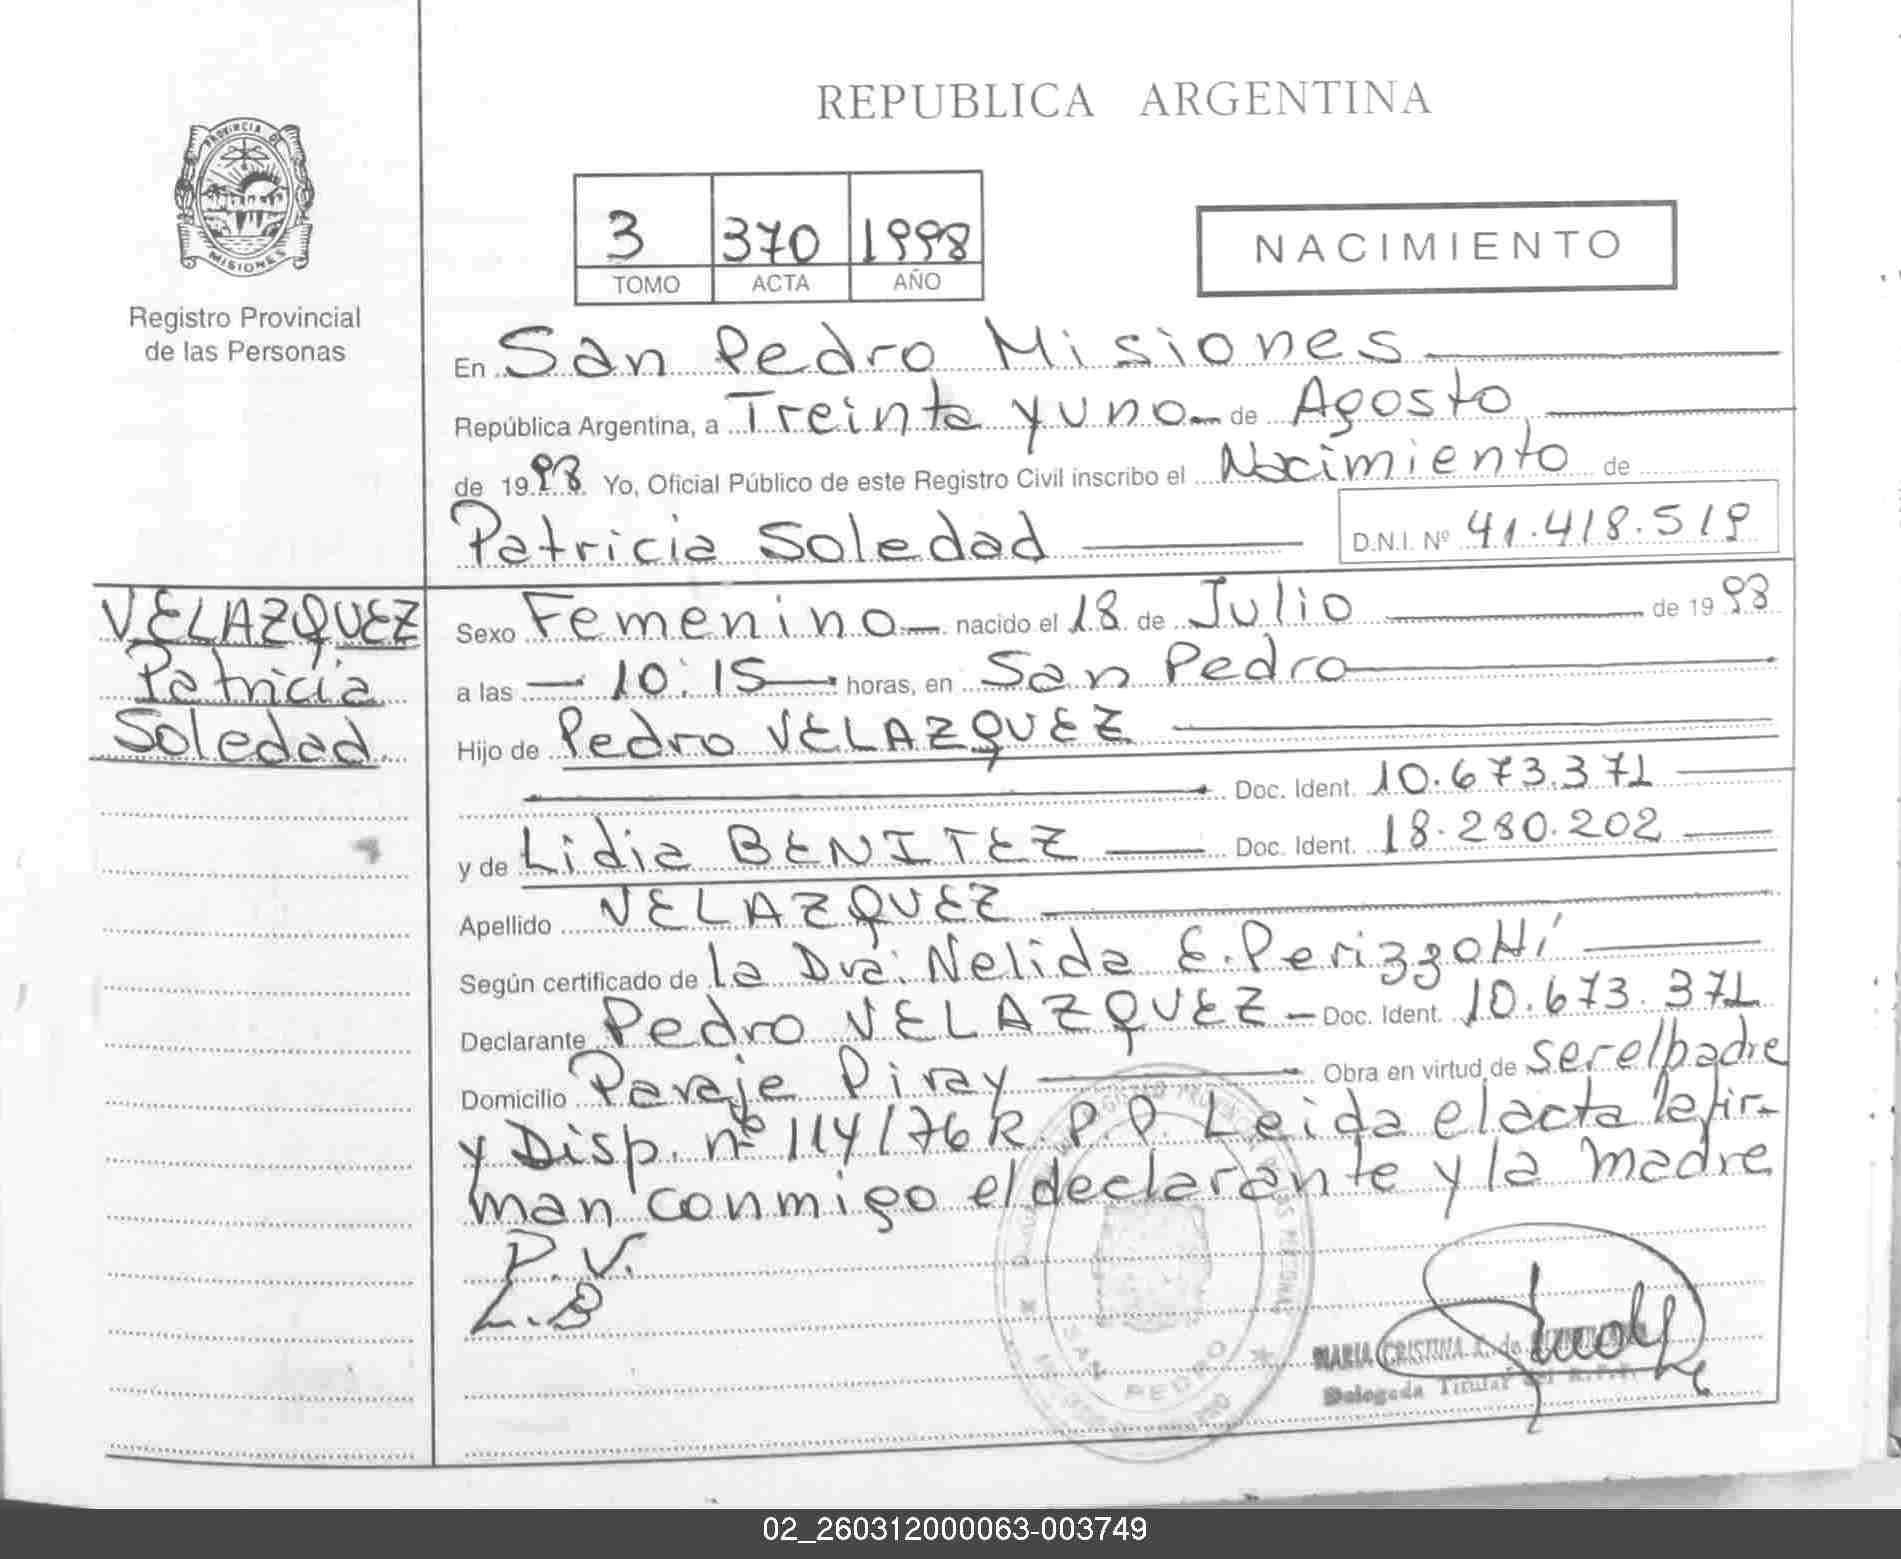 REPUBLICA ARGENTINA
PROVINCIA DE
MISIONES
Registro Provincial
de las Personas
3 370 1998
TOMO ACTA AÑO
NACIMIENTO
En San Pedro Misiones
República Argentina, a Treinta y uno de Agosto
de 1998 Yo, Oficial Público de este Registro Civil inscribo el Nacimiento de
Patricia Soledad D.N.I. Nº 41.418.519
VELAZQUEZ
Patricia
Soledad.
Sexo Femenino nacido el 18 de Julio de 1998
a las 10:15 horas, en San Pedro
Hijo de Pedro VELAZQUEZ
Doc. Ident. 10.673.371
y de Lidia BENITEZ Doc. Ident. 18.280.202
Apellido VELAZQUEZ
Según certificado de la Dra. Nelida E. Perizzotti
Declarante Pedro VELAZQUEZ Doc. Ident. 10.673.371
Domicilio Paraje Piray Obra en virtud de ser el padre
y Disp. nº 114/76 R.P.P. Leida el acta la fir-
man conmigo el declarante y la madre
P.V.
L.B
SAN PEDRO
MARIA CRISTINA A. de
Delegada Titular del R.P.P.
02_260312000063-003749